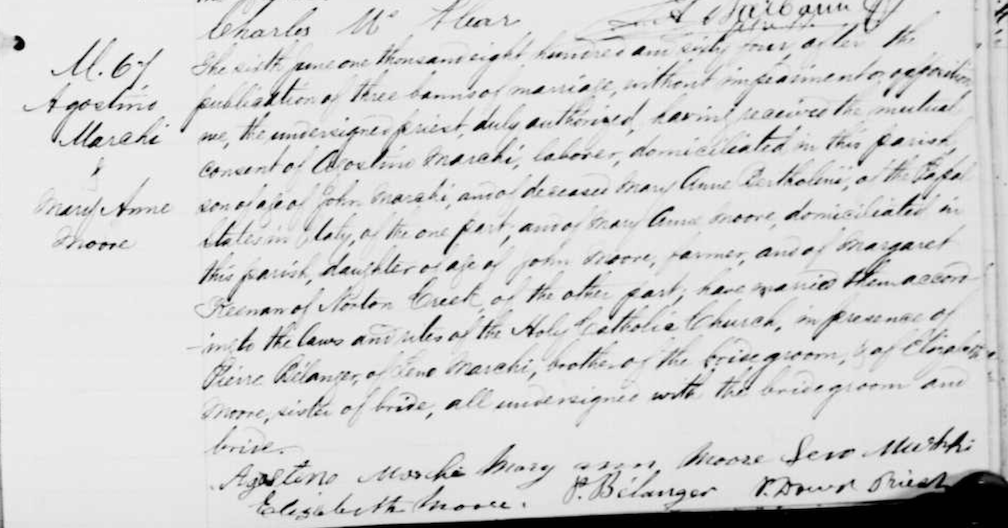 Charles Mc
M. 67
Agostino
Marchi
&
Mary Anne
Moore
The sixth June one thousand eight hundred and sixty four after the
publication of three banns of marriage, without impediment or opposition
we, the undersigned priest, duly authorized, having received the mutual
consent of Agostino Marchi, laborer, domiciliated in this parish,
son of age of John Marchi, and of deceased Mary Anne Bertholini, of the Papal
states in Italy, of the one part; and of Mary Anne Moore, domiciliated in
this parish, daughter of age of John Moore, farmer, and of Margaret
Keenan of Norton Creek, of the other part, have married them accord
-ing to the laws and rites of the Holy Catholic Church, in presence of
Pierre Bélanger, of Marchi, brother of the bridegroom, & of Elizabeth
Moore, sister of bride, all undersigned with the bridegroom and
bride.
Agostino Marchi Mary ann Moore
Elizabeth Moore. P. Bélanger P. Dowd Priest